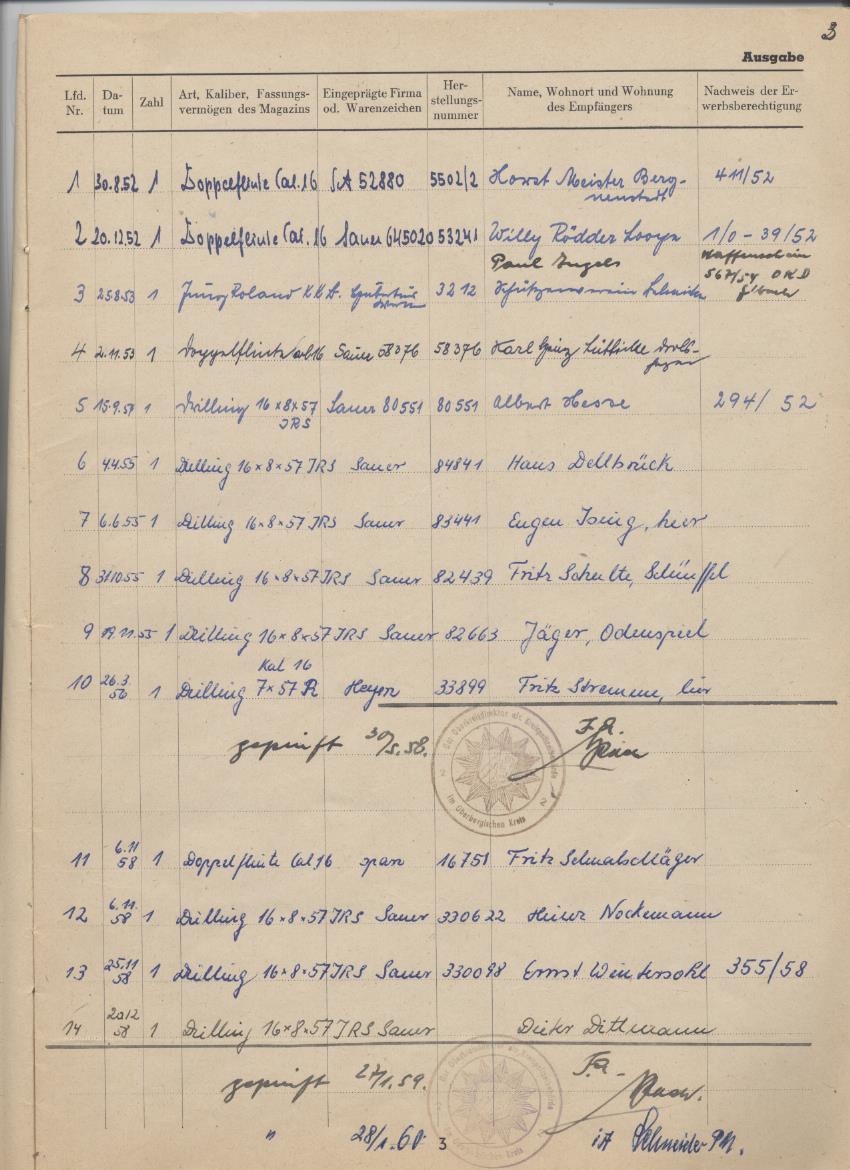 3
Ausgabe
Lfd. Nr. Da- tum Zahl Art, Kaliber, Fassungs- vermögen des Magazins Eingeprägte Firma od. Warenzeichen Her- stellungs- nummer Name, Wohnort und Wohnung des Empfängers Nachweis der Er- werbsberechtigung
1 30.8.52 1 Doppelflinte Cal. 16 52880 5502/2 Horst Meister Berg- 411/52
neustadt
2 20.12.52 1 Doppelflinte Cal. 16 Sauer 645020 53241 Willy Rödder 1/0 - 39/52
Paul Waffenschein
567/54 OKD
3 25.8.53 1 Roland KK 3212 Schützenverein
4 2.11.53 1 Doppelflinte Cal 16 Sauer 58376 58376 Karl
5 15.9.54 1 Drilling 16x8x57 Sauer 80551 80551 Albert Hesse 294/52
JRS
6 4.4.55 1 Drilling 16x8x57 JRS Sauer 84841 Hans Dellbrück
7 6.6.55 1 Drilling 16x8x57 JRS Sauer 83441 Eugen Ising, hier
8 31.10.55 1 Drilling 16x8x57 JRS Sauer 82439 Fritz Schulte,
9 19.11.55 1 Drilling 16x8x57 JRS Sauer 82663 Jäger, Odenspiel
Kal 16
10 26.3. 56 1 Drilling 7x57 R Heym 33899 Fritz Stremme, hier
geprüft 30/5.58. J.A.
Der Oberkreisdirektor als Kreispolizeibehörde
im Oberbergischen Kreis
11 6.11 58 1 Doppelflinte Cal. 16 span 16751 Fritz Schmalschläger
12 6.11. 58 1 Drilling 16x8x57 JRS Sauer 330622 Heinz Nockemann
13 25.11 58 1 Drilling 16x8x57 JRS Sauer 330098 Ernst Wintersohl 355/58
14 20.12 58 1 Drilling 16x8x57 JRS Sauer Dieter Dittmann
geprüft 27/1.59.
Der Oberkreisdirektor als Kreispolizeibehörde
im Oberbergischen Kreis
" 28/1.60 3 iA Schneider PM.